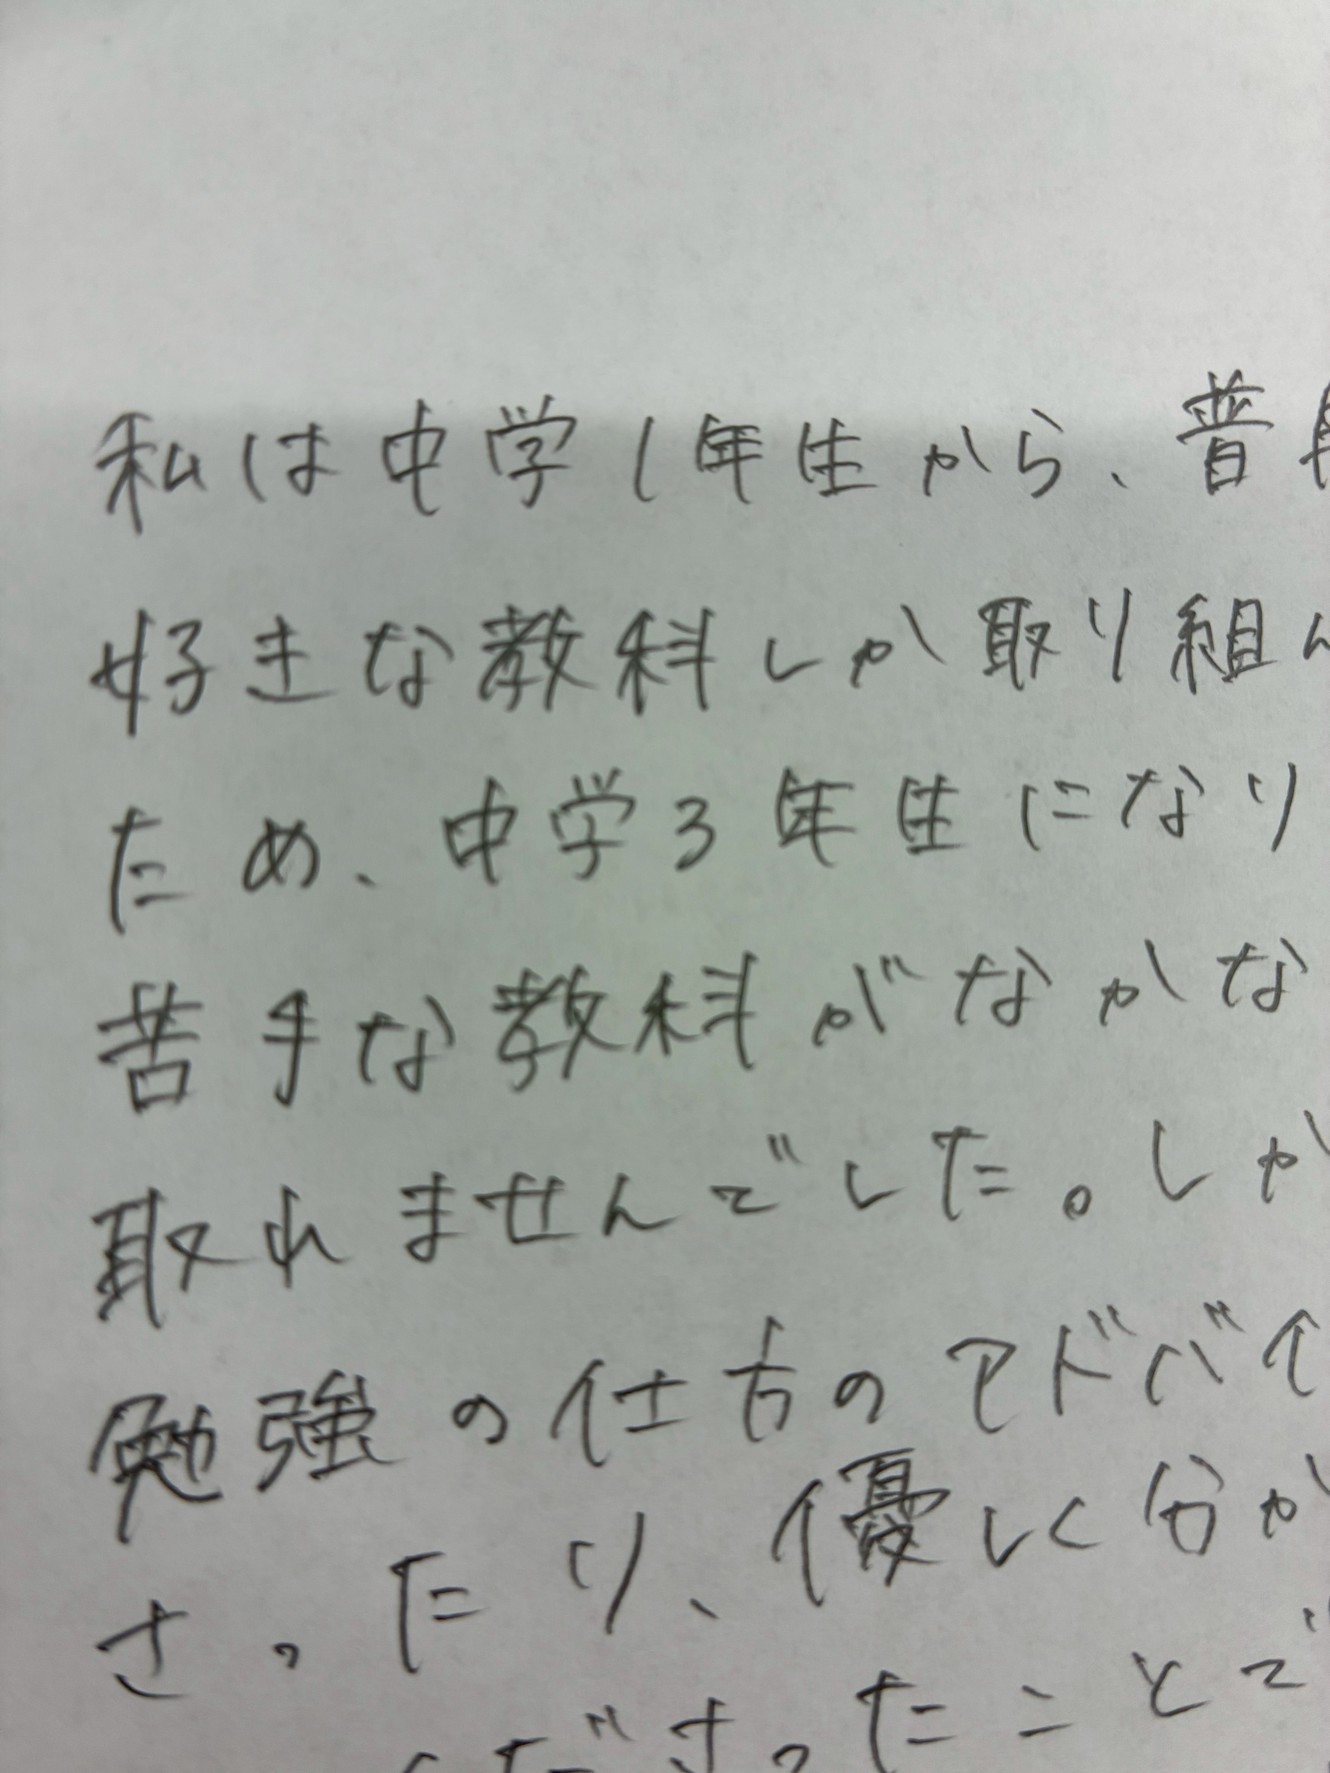 私は中学1年生から、普
好きな教科しか取り組
ため、中学3年生になり
苦手な教科がなかな
取れませんでした。しか
勉強の仕方のアドバイ
さったり、優しく分か
ださったことで